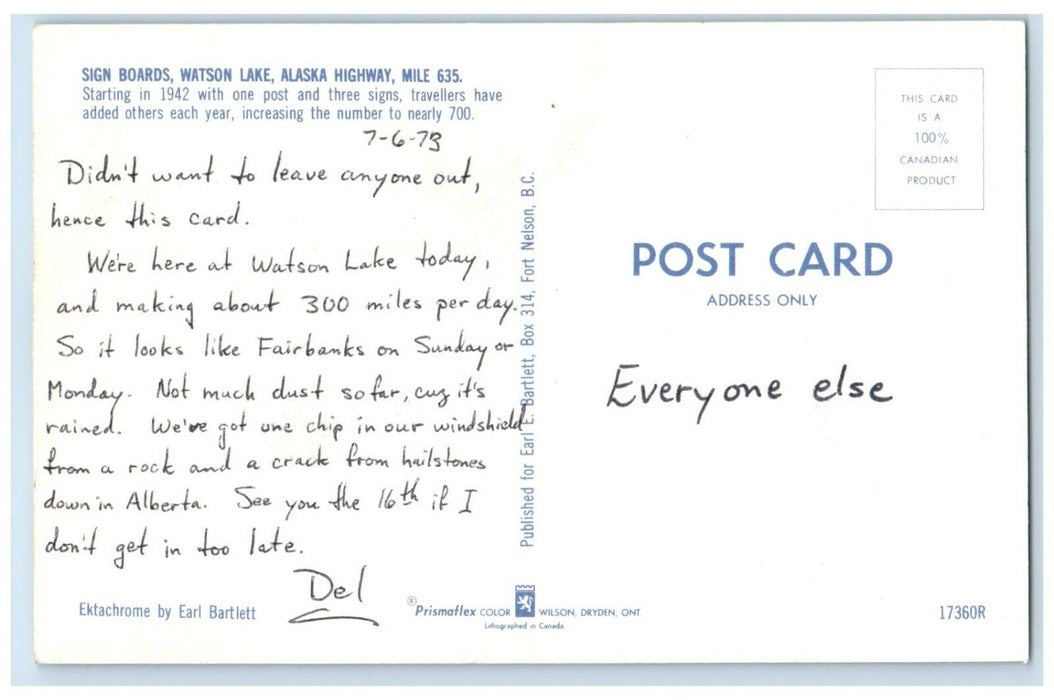 SIGN BOARDS, WATSON LAKE, ALASKA HIGHWAY, MILE 635.
Starting in 1942 with one post and three signs, travellers have
added others each year, increasing the number to nearly 700.
7-6-73
Didn't want to leave anyone out,
hence this card.
We're here at Watson Lake today,
and making about 300 miles per day.
So it looks like Fairbanks on Sunday or
Monday. Not much dust so far, cuz it's
rained. We've got one chip in our windshield
from a rock and a crack from hailstones
down in Alberta. See you the 16th if I
don't get in too late.
Del
Ektachrome by Earl Bartlett
Published for Earl E. Bartlett, Box 314, Fort Nelson, B.C.
® Prismaflex COLOR WILSON, DRYDEN, ONT.
Lithographed in Canada
THIS CARD
IS A
100%
CANADIAN
PRODUCT
POST CARD
ADDRESS ONLY
Everyone else
17360R